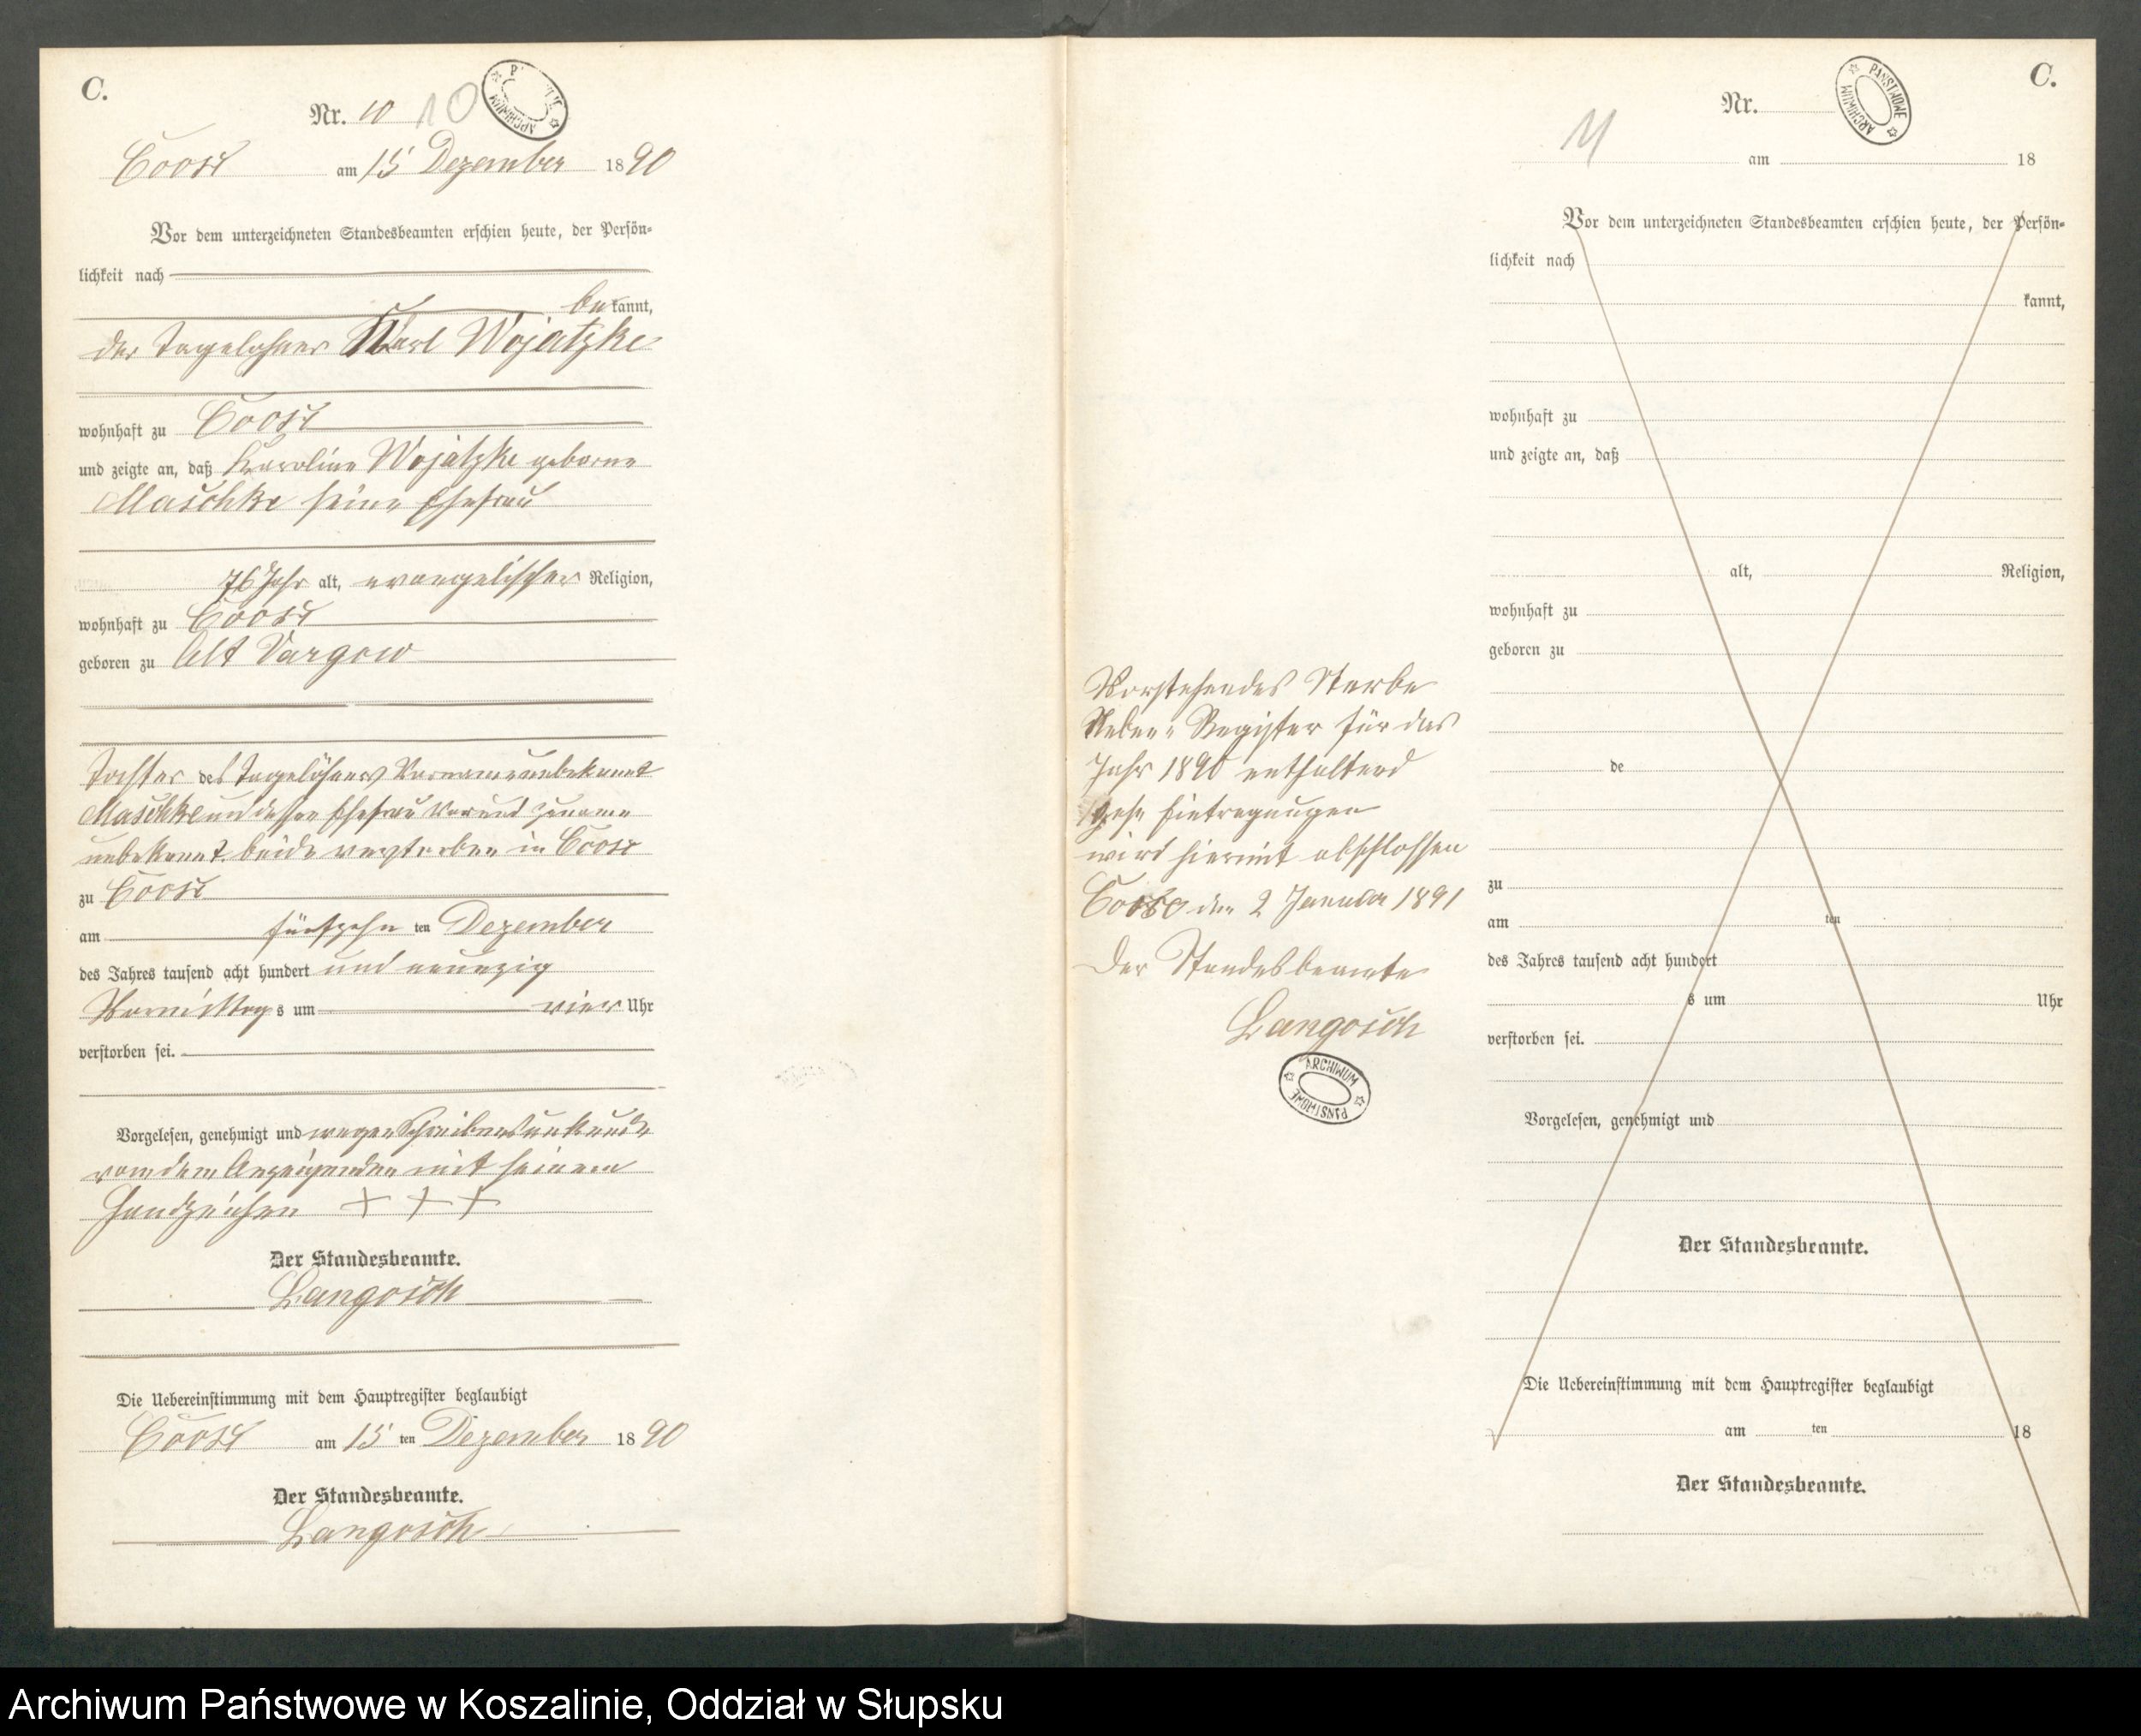 C.
Nr. 10 10
Coose am 15 Dezember 1890
Vor dem unterzeichneten Standesbeamten erschien heute, der Persön-
lichkeit nach
be kannt,
der Tagelohner Karl Wojatzke
wohnhaft zu Coose
und zeigte an, daß Karoline Wojatzke geborne
Maschke seine Ehefrau
76 Jahr alt, evangelischer Religion,
wohnhaft zu Coose
geboren zu Alt Dargow
Tochter des Tagelöhners Vorname unbekannt
Maschke und dessen Ehefrau Vor und Zuname
unbekannt beide verstorben in Coose
zu Coose
am fünfzehn ten Dezember
des Jahres tausend acht hundert und neunzig
Vormittag s um vier Uhr
verstorben sei.
Vorgelesen, genehmigt und wegen Schreibensunkunde
von dem Anzeigenden mit seinem
Handzeichen + + +
Der Standesbeamte.
Langosch
Die Uebereinstimmung mit dem Hauptregister beglaubigt
Coose am 15 ten Dezember 1890
Der Standesbeamte.
Langosch
Vorstehendes Sterbe
Neben- Register für das
Jahr 1890 enthaltend
zehn Eintragungen
wird hiermit abschlossen
den 2 Januar 1891
Der Standesbeamte
Langosch
ARCHIWUM PAŃSTWOWE
C.
Nr.
PAŃSTWOWE ARCHIWUM
11
am 18
Vor dem unterzeichneten Standesbeamten erschien heute, der Persön-
lichkeit nach
kannt,
wohnhaft zu
und zeigte an, daß
alt, Religion,
wohnhaft zu
geboren zu
de
zu
am ten
des Jahres tausend acht hundert
s um Uhr
verstorben sei.
Vorgelesen, genehmigt und
Der Standesbeamte.
Die Uebereinstimmung mit dem Hauptregister beglaubigt
am ten 18
Der Standesbeamte.
Archiwum Państwowe w Koszalinie, Oddział w Słupsku